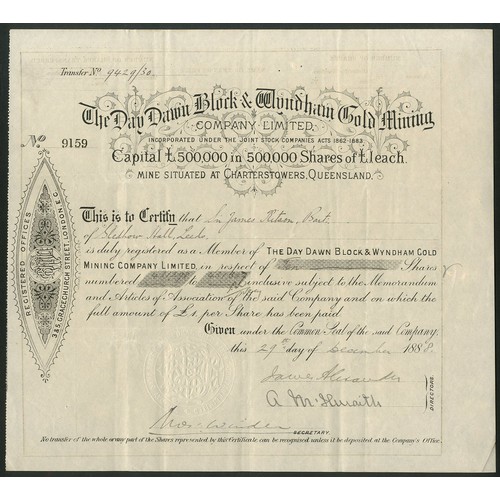 Transfer No 9429/30.
The Day Dawn Block & Wyndham Gold Mining
COMPANY LIMITED.
No 9159
INCORPORATED UNDER THE JOINT STOCK COMPANIES ACTS 1862-1883.
Capital £500,000 in 500,000 Shares of £1 each.
MINE SITUATED AT CHARTERSTOWERS, QUEENSLAND.
REGISTERED OFFICES
3&5, GRACECHURCH STREET, LONDON, E.C.
This is to Certify that Sir James Kitson, Bart.
of Gledhow Hall, Leeds
is duly registered as a Member of THE DAY DAWN BLOCK & WYNDHAM GOLD
MINING COMPANY LIMITED, in respect of Shares
numbered to inclusive subject to the Memorandum
and Articles of Association of the said Company and on which the
full amount of £1 per Share has been paid
Given under the Common Seal of the said Company,
this 29th day of December 1888.
James Alexander
DIRECTORS.
SECRETARY.
No transfer of the whole or any part of the Shares represented by this Certificate can be recognised unless it be deposited at the Company's Office.